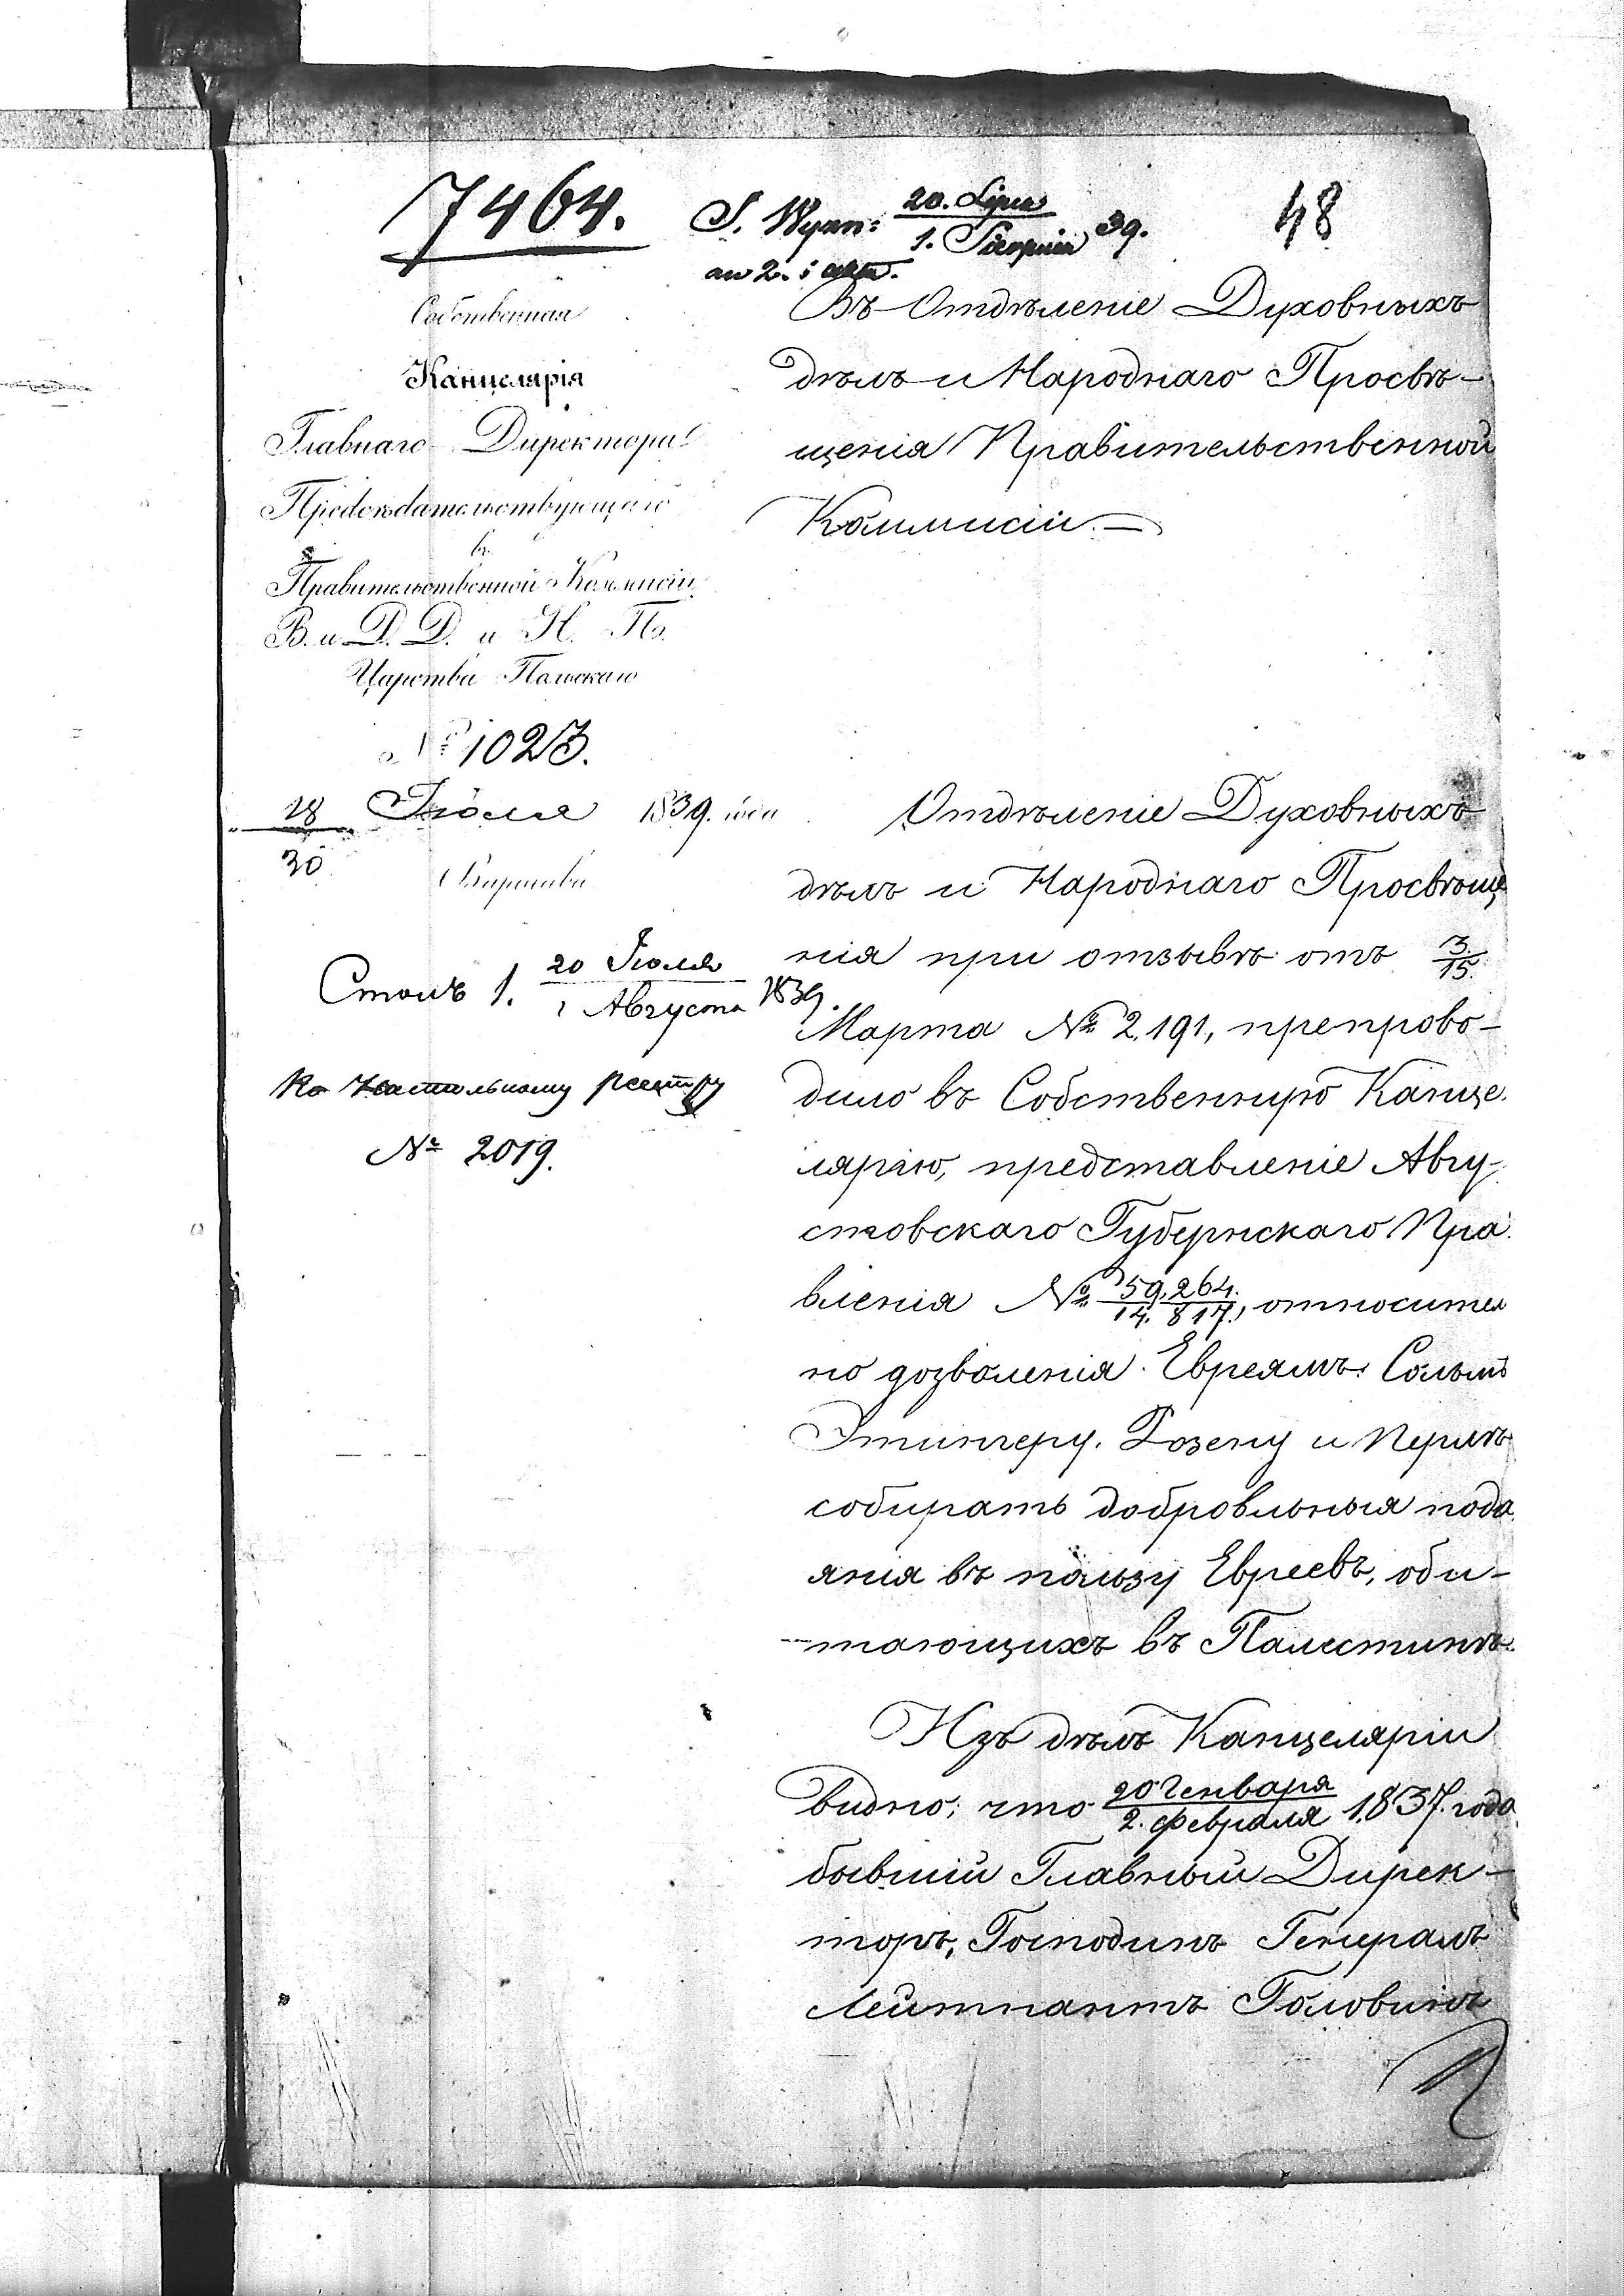 7464.
S. Wyzn: 20. Lipca / 1. Sierpnia 39.
48
Собственная
Канцелярія
Главнаго Директора
Предсѣдательствующаго
въ
Правительственной Коммисіи
В. и Д. Д. и Н. П.
Царства Польскаго
№ 1023.
18/30 Іюля 1839. года
Варшава
Столъ 1. 20 Іюля / 1 Августа 1839.
реестру
№ 2019.
Въ Отдѣленіе Духовныхъ
дѣлъ и Народнаго Просвѣ-
щенія Правительственной
Коммисіи.—
Отдѣленіе Духовныхъ
дѣлъ и Народнаго Просвѣще
нія при отзывѣ отъ 3/15
Марта № 2,191, препрово-
дило въ Собственную Канце.
лярію, представленіе Авгу-
стовскаго Губернскаго Пра
вленія № 59,264./14,817., относител
но дозволенія Евреямъ:
Этингеру. Розену и Перлѣ
собирать добровльныя пода
янія въ пользу Евреевъ, оби-
тающихъ въ Палестинѣ.
Изъ дѣлъ Канцеляріи
видно, что 20 Генваря / 2. Февраля 1837. года
бывшій Главный Дирек-
торъ, Господинъ Генералъ
Лейтнантъ Головинъ